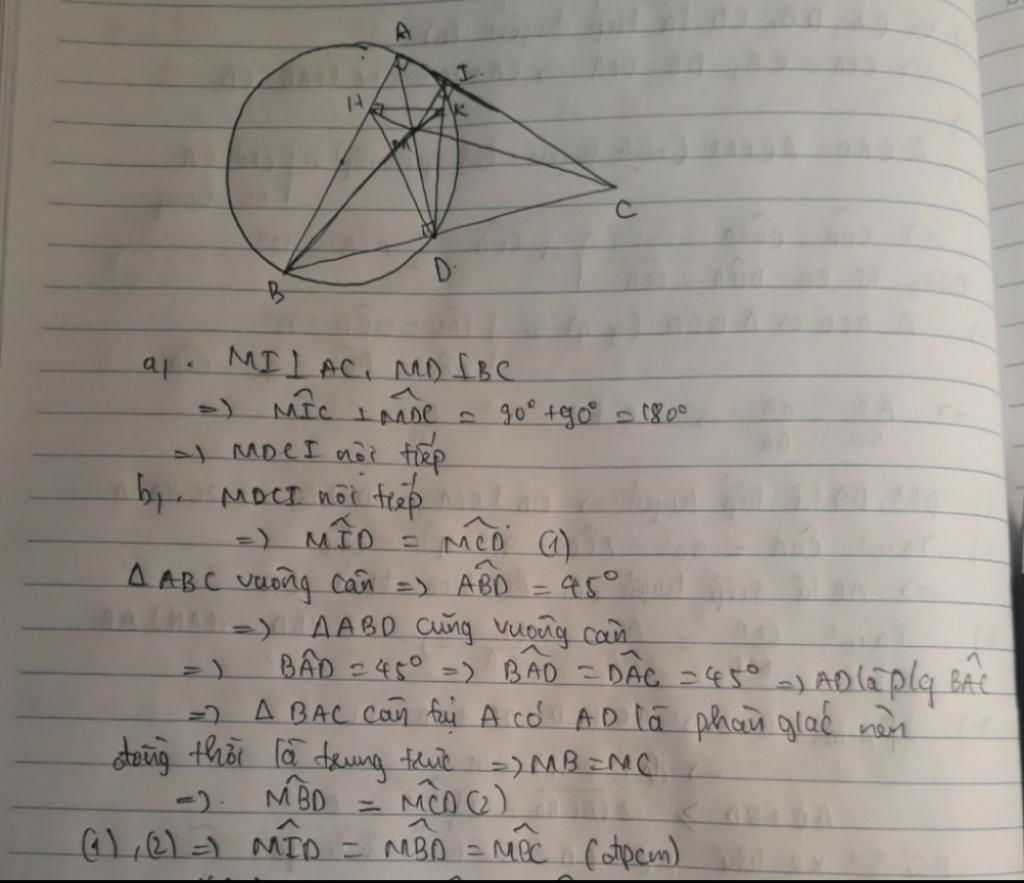 A
I
H
K
M
C
D
B
a, . MI ⊥ AC, MD ⊥ BC
=> MÎC + MD̂C = 90° + 90° = 180°
=> MDCI nội tiếp
b, . MDCI nội tiếp
=> MÎD = MĈD (1)
Δ ABC vuông cân => AB̂D = 45°
=> ΔABD cũng vuông cân
=> BÂD = 45° => BÂD = DÂC = 45° => AD là p/g BÂC
=> Δ BAC cân tại A có AD là phân giác nên
đồng thời là trung trực => MB = MC
=> MB̂D = MĈD (2)
(1), (2) => MÎD = MB̂D = MB̂C (đpcm)